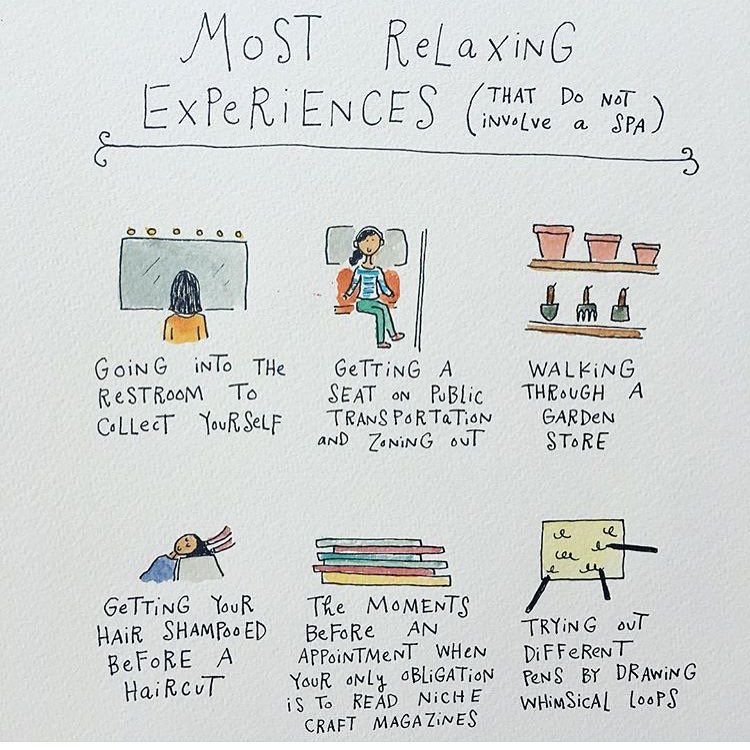 Most Relaxing
Experiences (that do not
involve a spa)
Going into the
restroom to
collect yourself
Getting a
seat on public
transportation
and zoning out
Walking
through a
garden
store
Getting your
hair shampooed
before a
haircut
The moments
before an
appointment when
your only obligation
is to read niche
craft magazines
Trying out
different
pens by drawing
whimsical loops